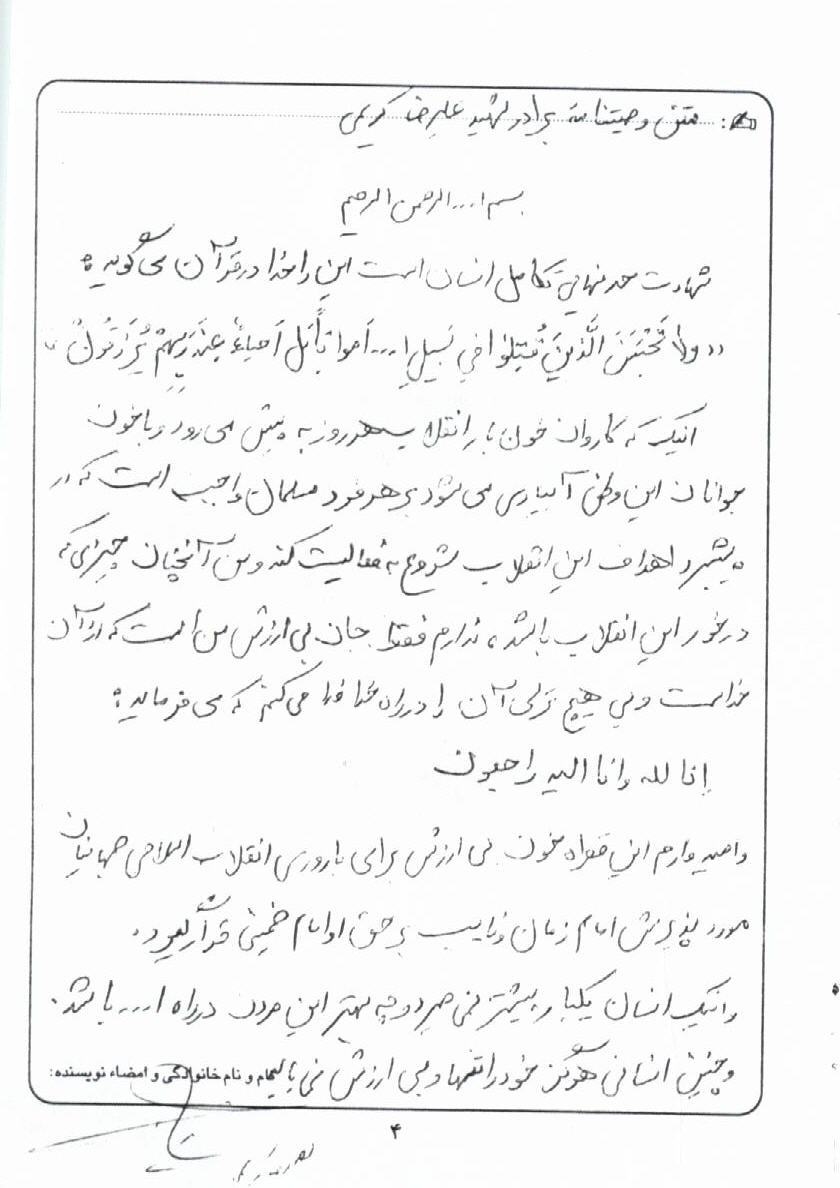 متن وصیتنامه برادر شهید علیرضا کریمی
بسم ا... الرحمن الرحیم
شهادت حد نهایی تکامل انسان است این را خدا در قرآن می گوید:
«ولا تَحْسَبَنَ الَّذینَ قُتِلوا في سَبیلِ ا... اَمواتاً بَل اَحیاءٌ عِنْدَ رَبِهِمْ یُرْزَقُونْ»
اینک که کاروان خون بار انقلاب هر روز به پیش می رود و با خون
جوانان این وطن آبیاری می شود بر هر فرد مسلمان واجب است که در
پیشبرد اهداف این انقلاب شروع به فعالیت کند و من آنچنان چیزی که
در خور این انقلاب باشد، ندارم فقط جان بی ارزش من است که از آن
خداست و بی هیچ ترسی آن را در راه خدا فدا می کنم که می فرماید:
إنا لله وانا الیه راجعون
وامیدوارم این قطره خون بی ارزش برای باروری انقلاب اسلامی جهانیان
مورد پذیرش امام زمان و نایب بر حق او امام خمینی قرار گیرد.
واینک انسان یکبار بیشتر نمی میرد و چه بهتر این مردن در راه ا... باشد.
و چنین انسانی هرگز خود را تنها و بی ارزش نمی یابد
نام و نام خانوادگی و امضاء نویسنده:
۴